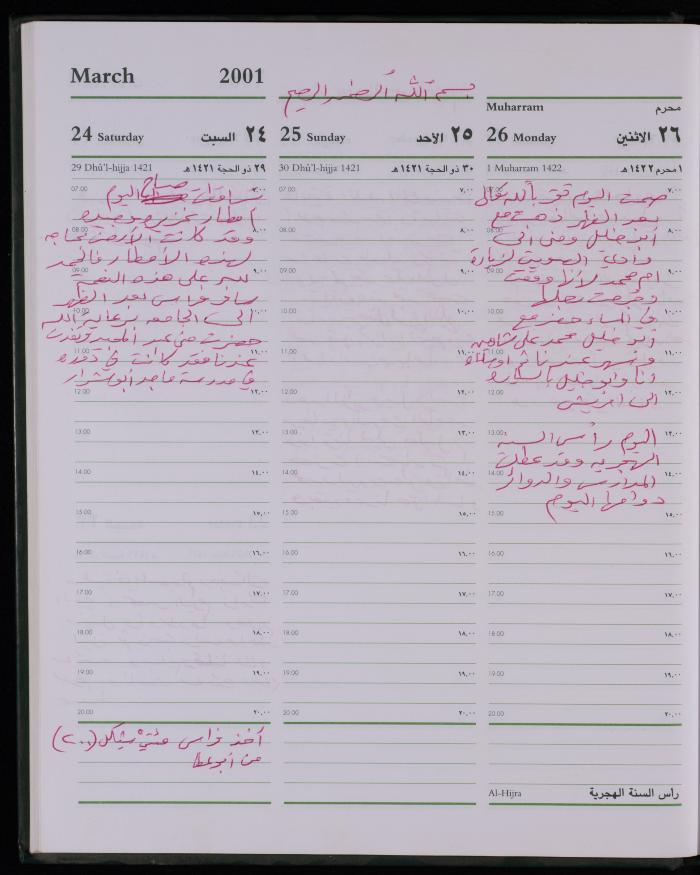 March 2001
بسم الله الرحمن الرحيم
24 Saturday السبت ٢٤
29 Dhû'l-hijja 1421 ٢٩ ذو الحجة ١٤٢١هـ
تساقطت صباح اليوم
أمطار غزيرة
وقد كانت الأرض بحاجة
لهذه الأمطار فالحمد
لله على هذه النعمة
سافر فراس بعد الظهر
الى الجامعة برعاية الله
حضرت منى عبد المجيد
عندنا فقد كانت في دورة
في مدرسة ماجد أبو شرار
07.00 ٧,٠٠
08.00 ٨,٠٠
09.00 ٩,٠٠
10.00 ١٠,٠٠
11.00 ١١,٠٠
12.00 ١٢,٠٠
13.00 ١٣,٠٠
14.00 ١٤,٠٠
15.00 ١٥,٠٠
16.00 ١٦,٠٠
17.00 ١٧,٠٠
18.00 ١٨,٠٠
19.00 ١٩,٠٠
20.00 ٢٠,٠٠
أخذ فراس مئتي شيكل (٢٠٠)
من أبو عطا
25 Sunday الأحد ٢٥
30 Dhû'l-hijja 1421 ٣٠ ذو الحجة ١٤٢١هـ
07.00 ٧,٠٠
08.00 ٨,٠٠
09.00 ٩,٠٠
10.00 ١٠,٠٠
11.00 ١١,٠٠
12.00 ١٢,٠٠
13.00 ١٣,٠٠
14.00 ١٤,٠٠
15.00 ١٥,٠٠
16.00 ١٦,٠٠
17.00 ١٧,٠٠
18.00 ١٨,٠٠
19.00 ١٩,٠٠
20.00 ٢٠,٠٠
Muharram محرم
26 Monday الاثنين ٢٦
1 Muharram 1422 ١ محرم ١٤٢٢هـ
صحت اليوم
بعد الظهر ذهبت مع
أبو خليل ومنى الى
لزيارة
ام محمد
في المساء حضر مع
أبو خليل محمد علي شاهين
وسهر عندنا
أنا وابو خليل بالسيارة
الى
اليوم رأس السنة
الهجرية وقد عطلت
المدارس والدوائر
دوامها اليوم
07.00 ٧,٠٠
08.00 ٨,٠٠
09.00 ٩,٠٠
10.00 ١٠,٠٠
11.00 ١١,٠٠
12.00 ١٢,٠٠
13.00 ١٣,٠٠
14.00 ١٤,٠٠
15.00 ١٥,٠٠
16.00 ١٦,٠٠
17.00 ١٧,٠٠
18.00 ١٨,٠٠
19.00 ١٩,٠٠
20.00 ٢٠,٠٠
Al-Hijra رأس السنة الهجرية